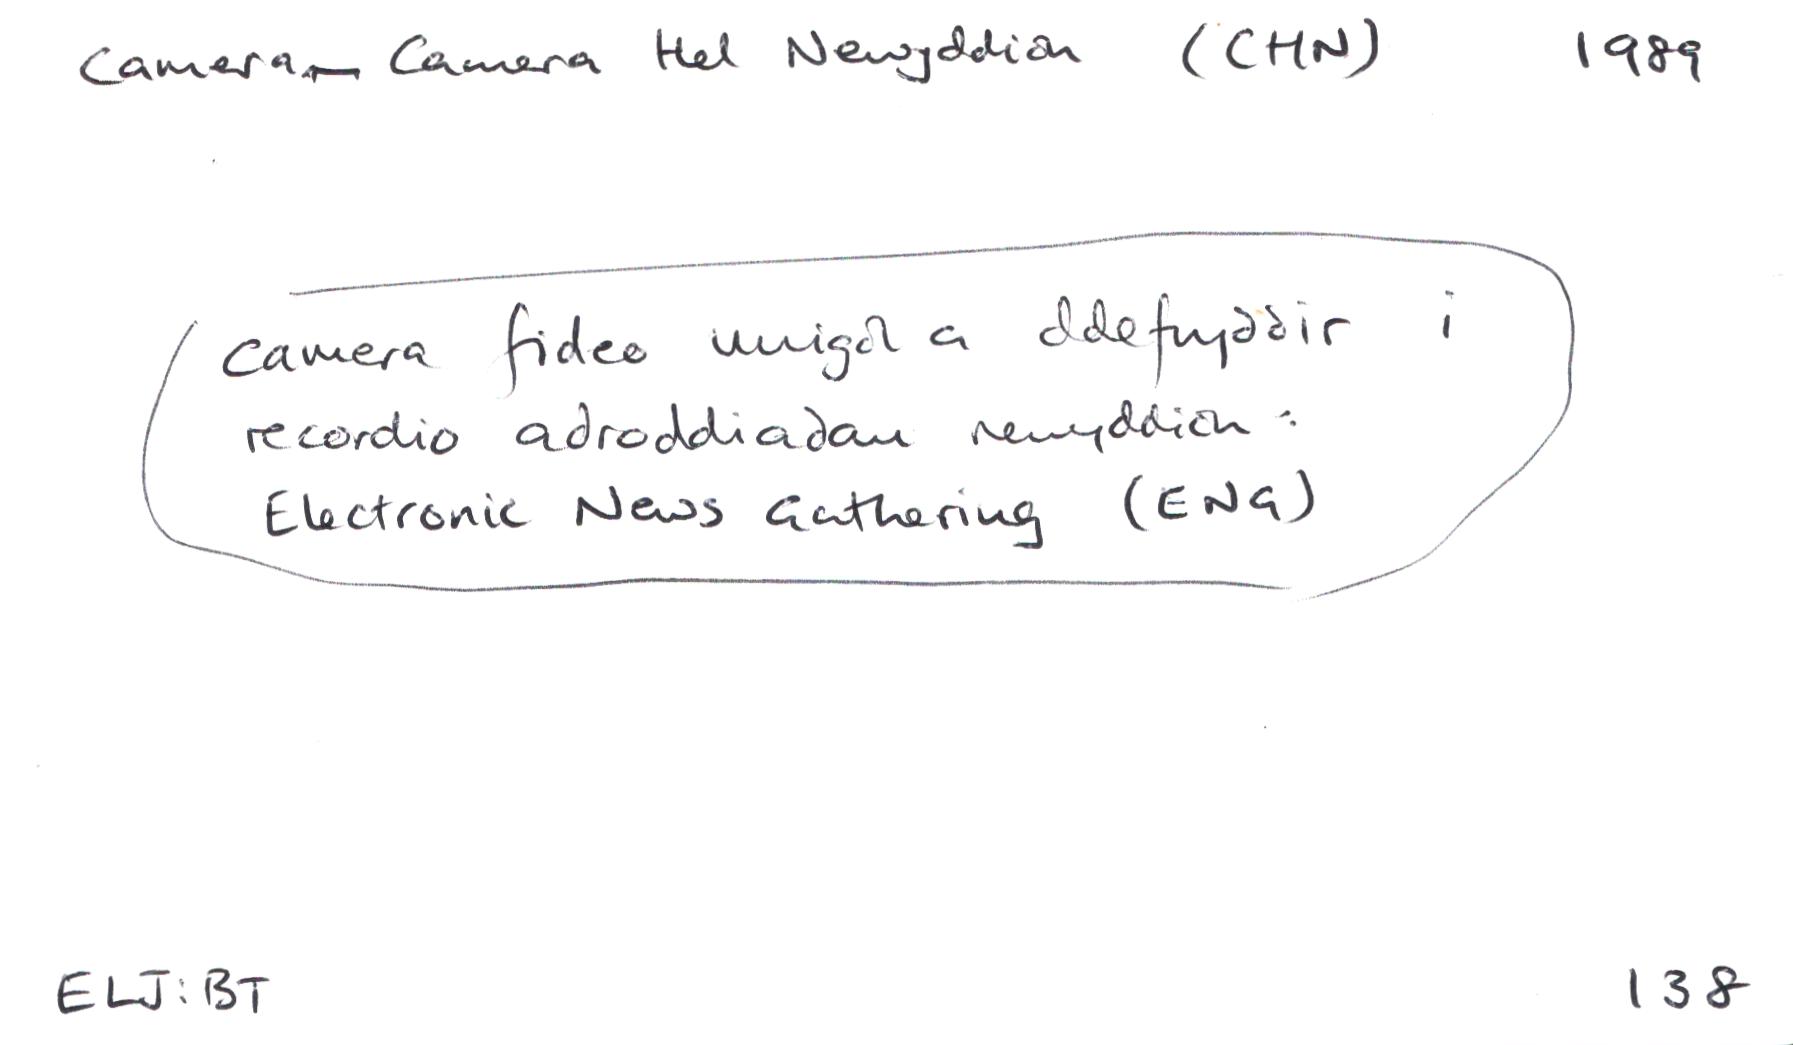 Camera - Camera Hel Newyddion (CHN) 1989
camera fideo unigol a ddefnyddir i
recordio adroddiadau newyddion :
Electronic News Gathering (ENG)
ELJ:BT 138